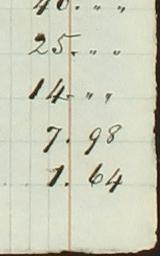 40. " "
25. " "
14. " "
7. 98
1. 64